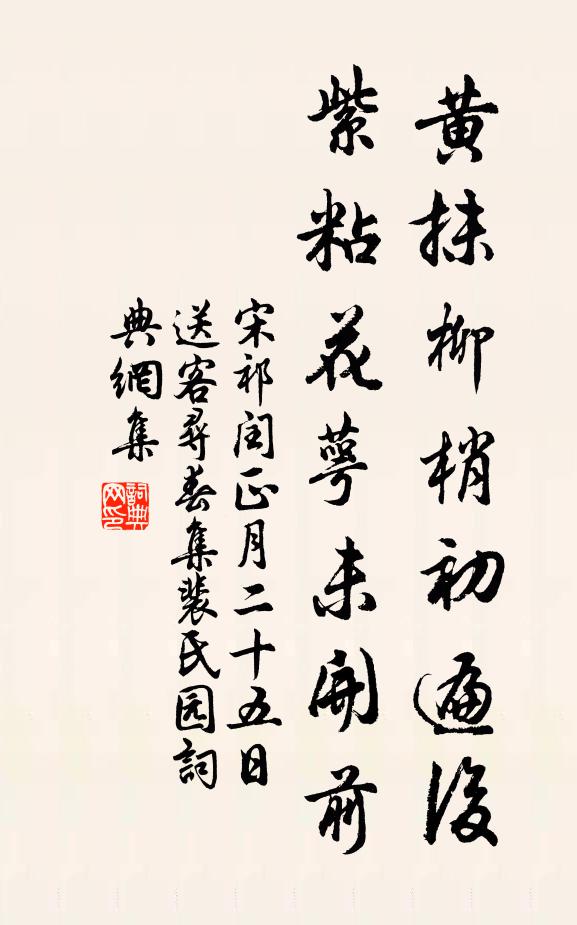 黄抹柳梢初遍後
紫粘花萼未開前
宋祁閏正月二十五日
送客尋春集裴氏园詞
典網集
詞典网印